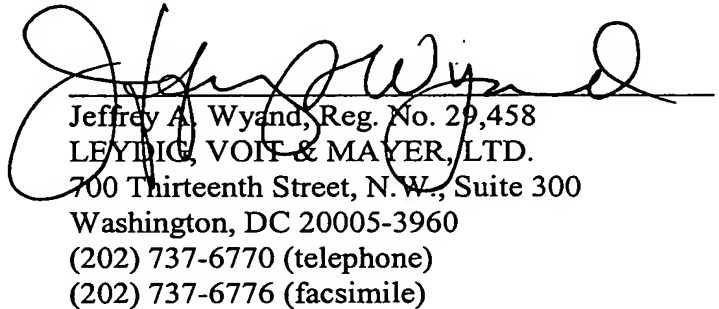 Jeffrey A. Wyand, Reg. No. 29,458
LEYDIG, VOIT & MAYER, LTD.
700 Thirteenth Street, N.W., Suite 300
Washington, DC 20005-3960
(202) 737-6770 (telephone)
(202) 737-6776 (facsimile)